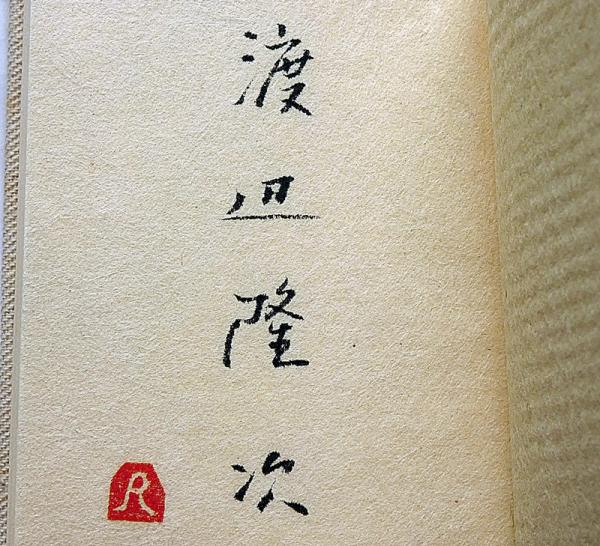 渡辺隆次
R